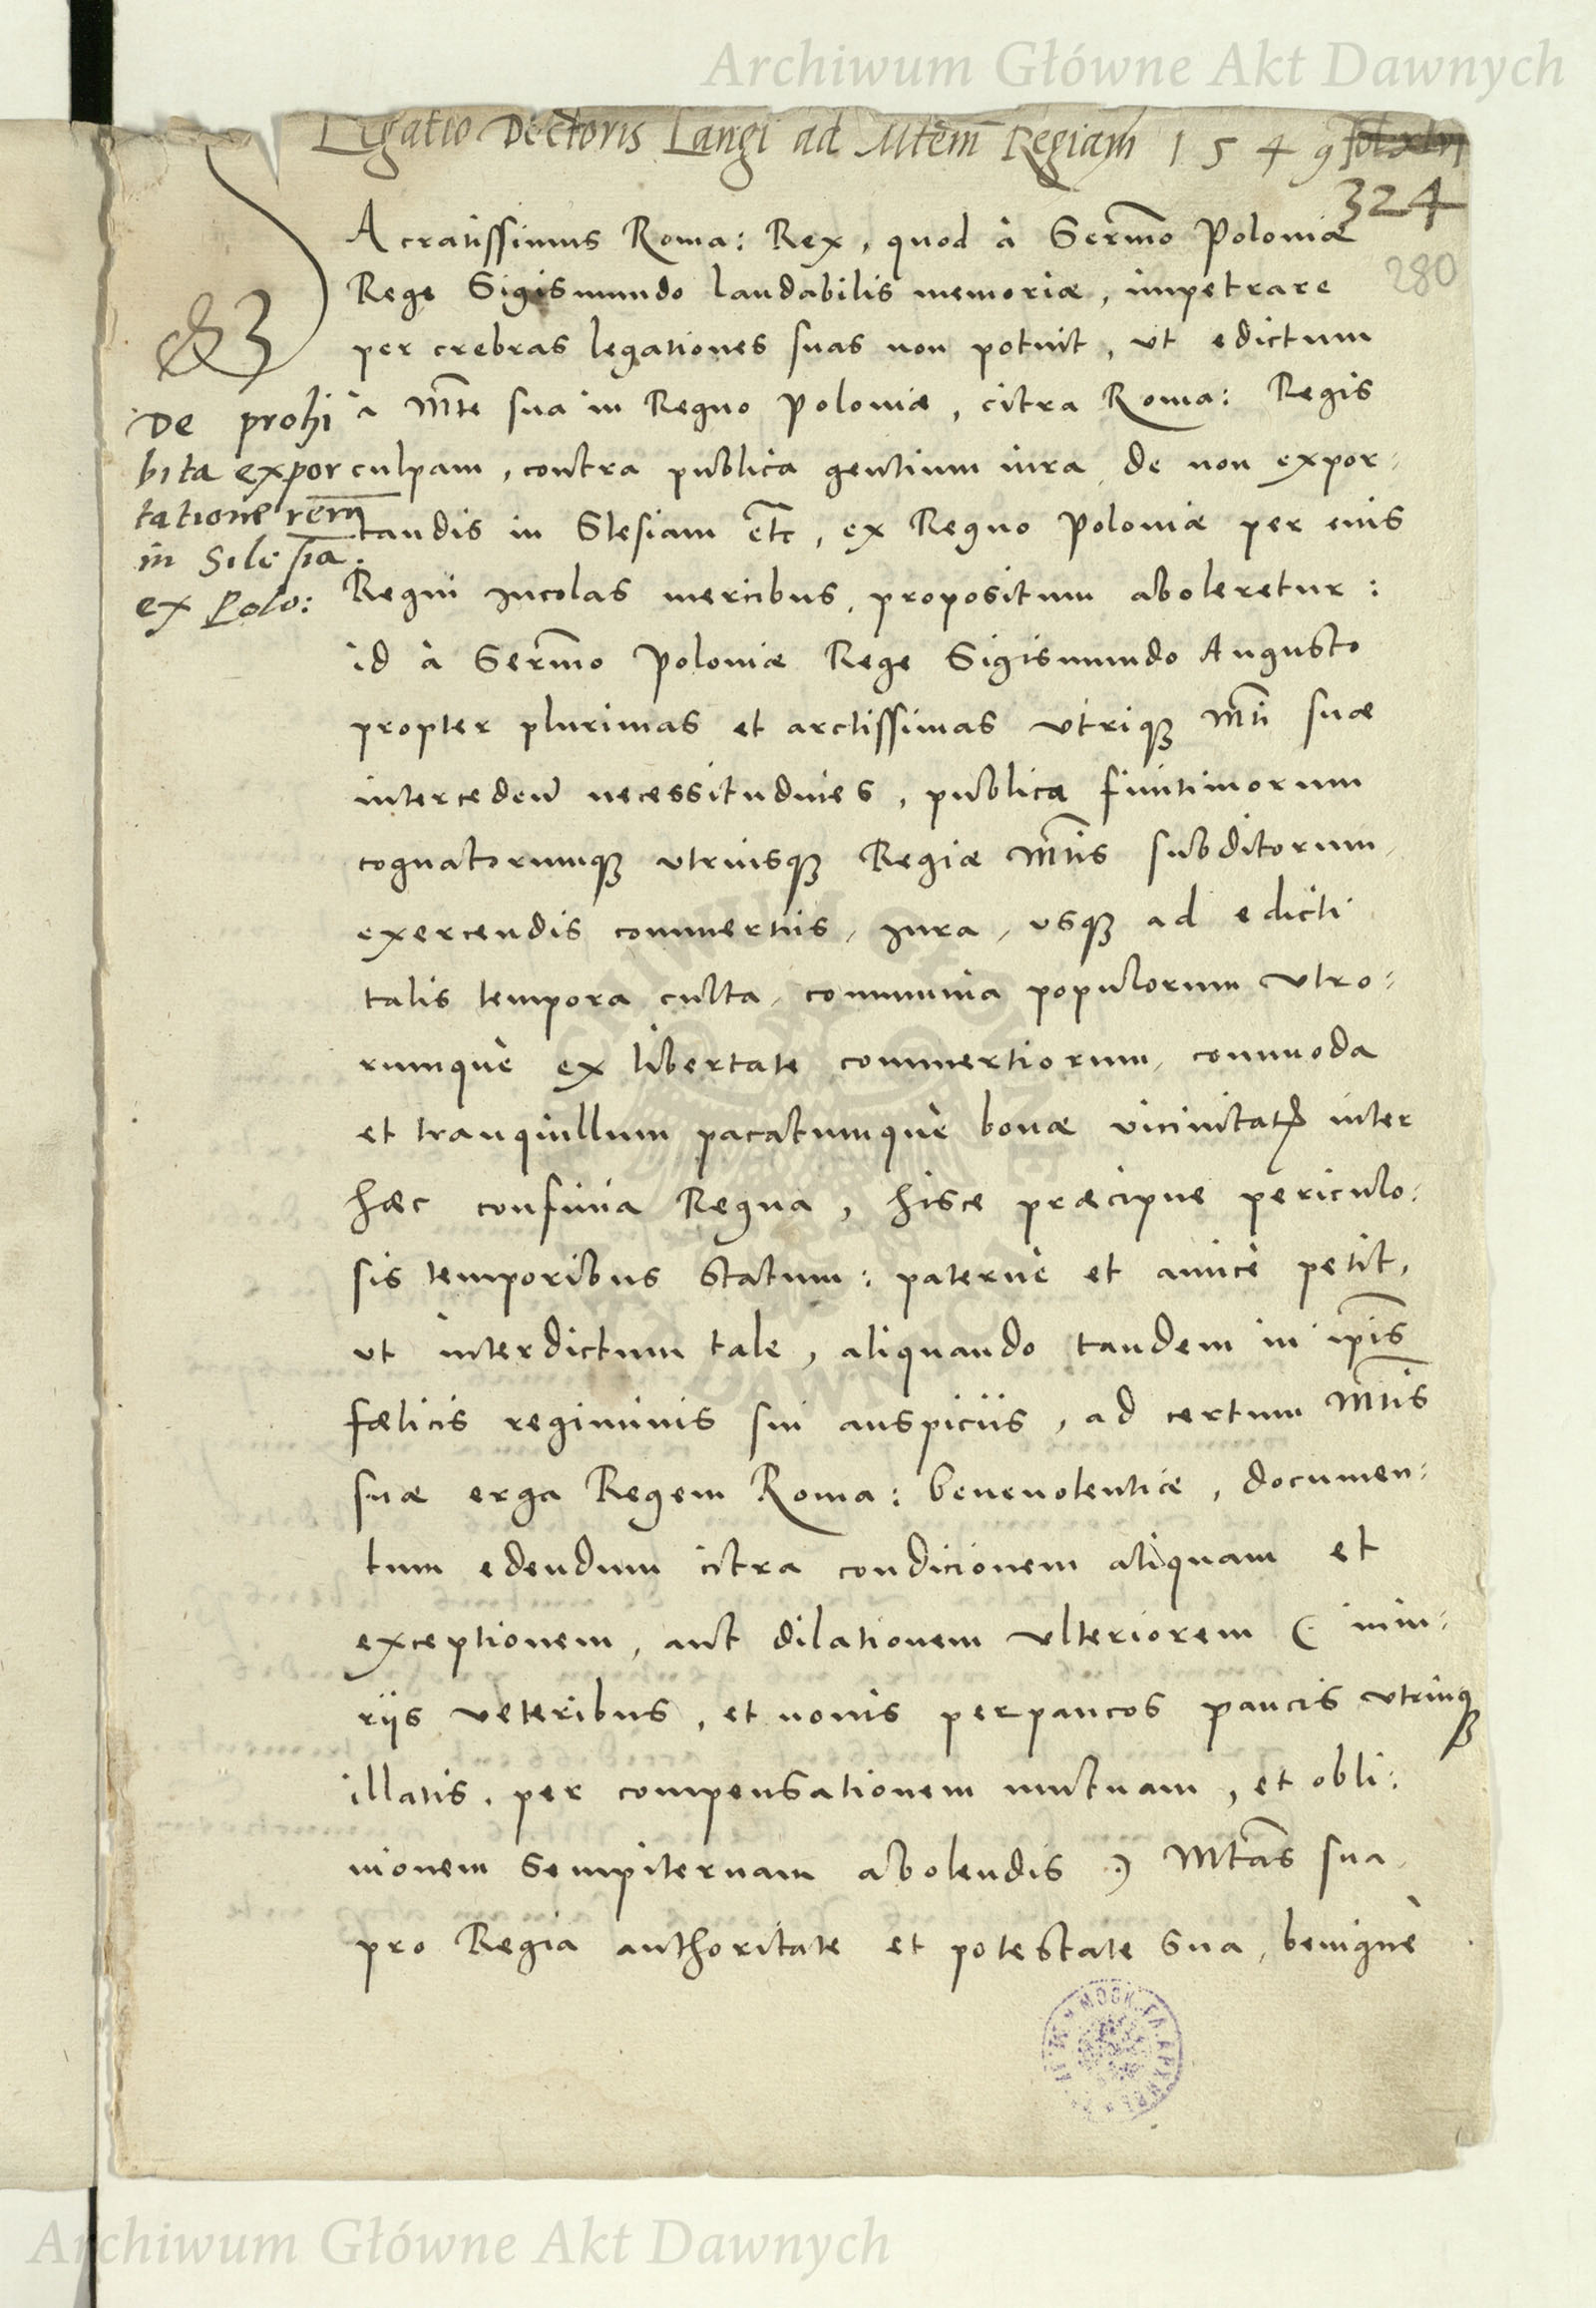 Archiwum Główne Akt Dawnych
Legatio Doctoris Langi ad Mtem Regiam 1549
324
280
De prohi
bita expor
tatione rerum
in Silesia
ex Polo:
Acratissimus Roma: Rex, quod à Sermo Poloniæ
Rege Sigismundo laudabilis memoriæ, impetrare
per crebras legationes suas non potuit, ut edictum
a Mte sua in Regno Poloniæ, citra Roma: Regis
culpam, contra publica gentium iura, de non expor:
tandis in Slesiam etc, ex Regno Poloniæ per eius
Regni incolas mercibus, propositum aboleretur:
id à Sermo Poloniæ Rege Sigismundo Augusto
propter plurimas et arctissimas utriqꝫ Mti suæ
interceden necessitudines, publica finitimorum
cognatorumqꝫ utriusqꝫ Regiæ Mtis subditorum,
exercendis commertiis, iura, usqꝫ ad edicti
talis tempora culta, communia populorum utro:
rumque ex libertate commertiorum, commoda
et tranquillum pacatumquè bonæ vicinitatis inter
hæc confinia Regna, hisce præcipue periculo:
sis temporibus statum: paternè et amicè petit,
ut interdictum tale, aliquando tandem in ipis
fælicis regiminis sui auspiciis, ad certum Mtis
suæ erga Regem Roma: beneuolentiæ, documen:
tum edendum citra condicionem aliquam et
exceptionem, aut dilationem ulteriorem (. iniu:
riis veteribus, et nouis perpaucos paucis utrinqꝫ
illatis, per compensationem mutuam, et obli:
uionem sempiternam abolendis .) Mtas sua,
pro Regia authoritate et potestate sua, benignè
Archiwum Główne Akt Dawnych